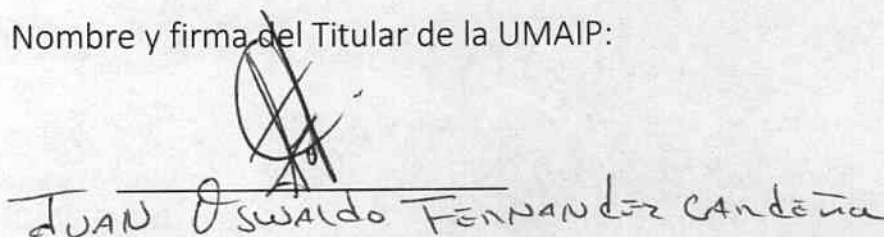 Nombre y firma del Titular de la UMAIP:
JUAN OSWALdO FERNANdEz CARdEña